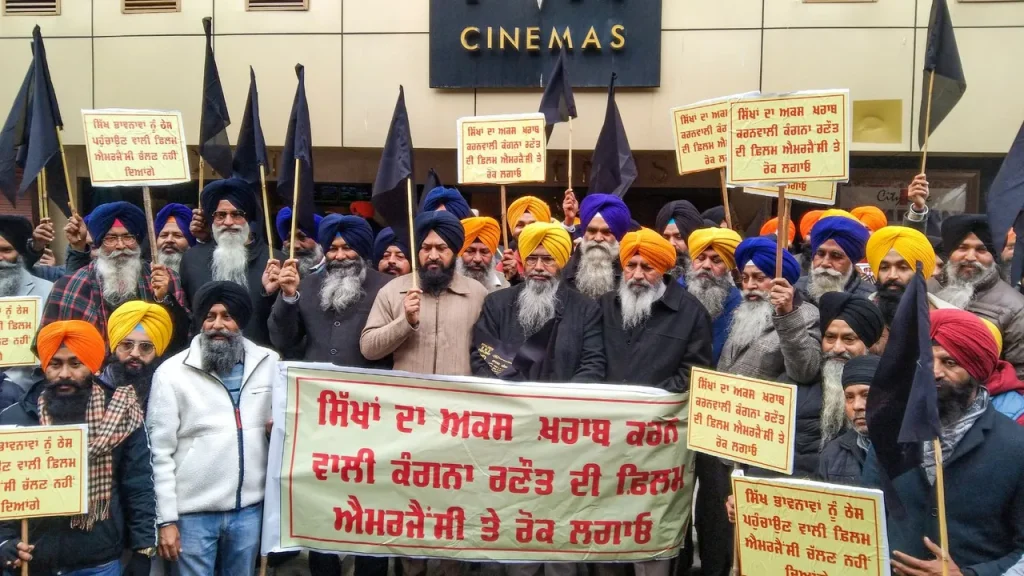 CINEMAS
ਸਿੱਖ ਭਾਵਨਾਵਾਂ ਨੂੰ ਠੇਸ
ਪਹੁੰਚਾਉਣ ਵਾਲੀ ਫ਼ਿਲਮ
ਐਮਰਜੈਂਸੀ ਚੱਲਣ ਨਹੀਂ
ਦਿਆਂਗੇ
ਸਿੱਖਾਂ ਦਾ ਅਕਸ ਖ਼ਰਾਬ
ਕਰਨਵਾਲੀ ਕੰਗਨਾ ਰਣੌਤ
ਦੀ ਫ਼ਿਲਮ ਐਮਰਜੈਂਸੀ ਤੇ
ਰੋਕ ਲਗਾਓ
ਸਿੱਖਾਂ ਦਾ ਅਕਸ
ਕਰਨਵਾਲੀ ਕੰਗਨਾ
ਦੀ ਫ਼ਿਲਮ
ਰੋਕ
ਸਿੱਖਾਂ ਦਾ ਅਕਸ ਖ਼ਰਾਬ
ਕਰਨਵਾਲੀ ਕੰਗਨਾ ਰਣੌਤ
ਦੀ ਫ਼ਿਲਮ ਐਮਰਜੈਂਸੀ ਤੇ
ਰੋਕ ਲਗਾਓ
ਸਿੱਖਾਂ ਦਾ ਅਕਸ ਖ਼ਰਾਬ ਕਰਨ
ਵਾਲੀ ਕੰਗਨਾ ਰਣੌਤ ਦੀ ਫ਼ਿਲਮ
ਐਮਰਜੈਂਸੀ ਤੇ ਰੋਕ ਲਗਾਓ
ਸਿੱਖਾਂ ਦਾ ਅਕਸ ਖ਼ਰਾਬ
ਕਰਨਵਾਲੀ ਕੰਗਨਾ ਰਣੌਤ
ਦੀ ਫ਼ਿਲਮ ਐਮਰਜੈਂਸੀ ਤੇ
ਰੋਕ ਲਗਾਓ
ਭਾਵਨਾਵਾਂ ਨੂੰ ਠੇਸ
ਵਾਲੀ ਫ਼ਿਲਮ
ਚੱਲਣ ਨਹੀਂ
ਦਿਆਂਗੇ
ਸਿੱਖ ਭਾਵਨਾਵਾਂ ਨੂੰ ਠੇਸ
ਪਹੁੰਚਾਉਣ ਵਾਲੀ ਫ਼ਿਲਮ
ਐਮਰਜੈਂਸੀ ਚੱਲਣ ਨਹੀਂ